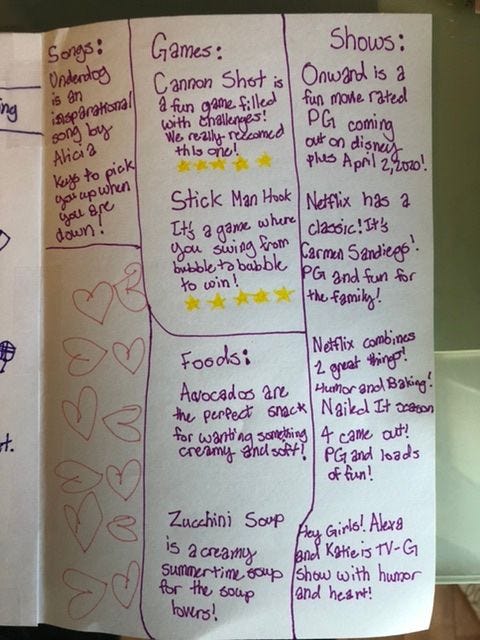 Songs:
Underdog
is an
insparational
song by
Alicia
Keys to pick
you up when
you are
down!
Games:
Cannon Shot is
a fun game filled
with challenges!
We really recomed
this one!
Stick Man Hook
It's a game where
you swing from
bubble to bubble
to win!
Foods:
Avocados are
the perfect snack
for wanting something
creamy and soft!
Zucchini Soup
is a creamy
summertime soup
for the soup
lovers!
Shows:
Onward is a
fun movie rated
PG coming
out on disney
plus April 2, 2020!
Netflix has a
classic! It's
Carmen Sandiego!
PG and fun for
the family!
Netflix combines
2 great things!
Humor and Baking!
Nailed It season
4 came out!
PG and loads
of fun!
Hey Girls! Alexa
and Katie is TV-G
show with humor
and heart!
ng
t.